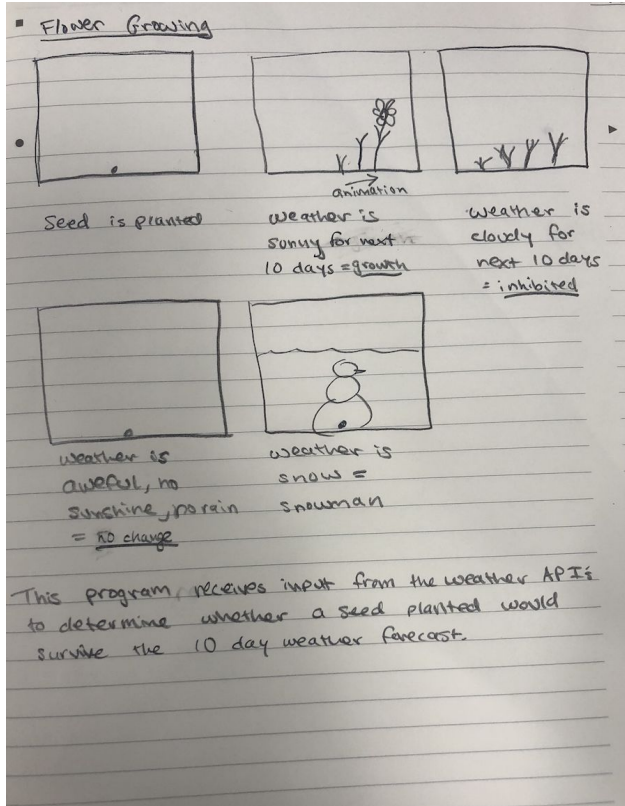 Flower Growing
animation
Seed is planted
weather is
sunny for next
10 days = growth
weather is
cloudy for
next 10 days
= inhibited
weather is
aweful, no
sunshine, no rain
= no change
weather is
snow =
snowman
This program, receives input from the weather API's
to determine whether a seed planted would
survive the 10 day weather forecast.